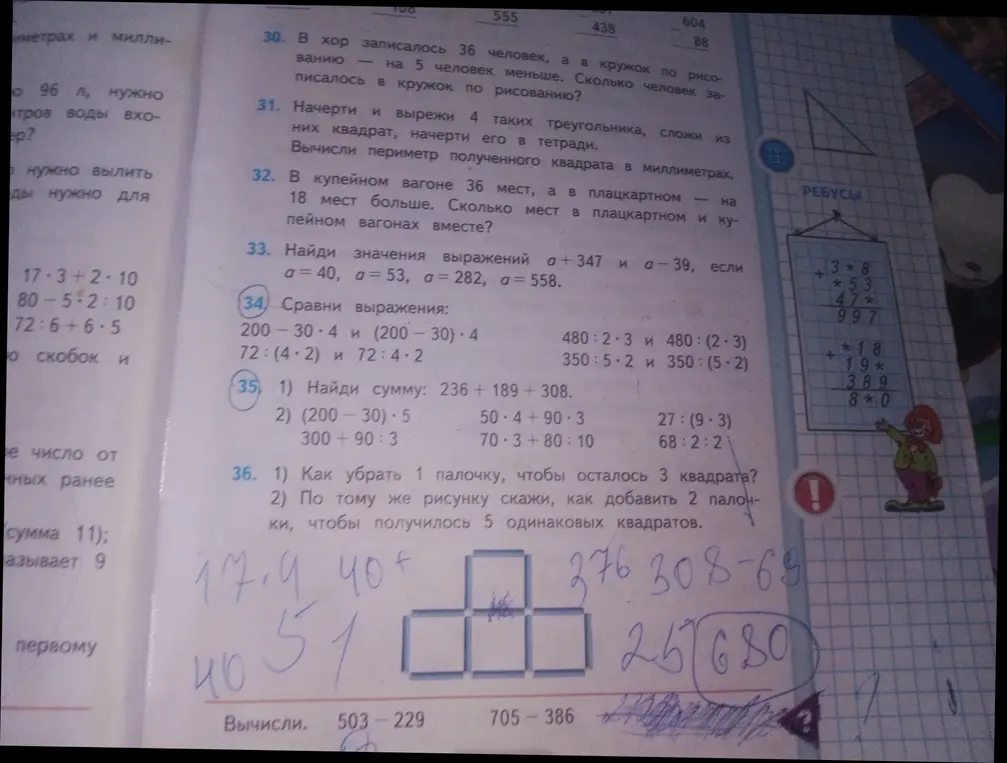 555
438
604
88
30. В хор записалось 36 человек, а в кружок по рисо-
ванию — на 5 человек меньше. Сколько человек за-
писалось в кружок по рисованию?
31. Начерти и вырежи 4 таких треугольника, сложи из
них квадрат, начерти его в тетради.
Вычисли периметр полученного квадрата в миллиметрах.
32. В купейном вагоне 36 мест, а в плацкартном — на
18 мест больше. Сколько мест в плацкартном и ку-
пейном вагонах вместе?
33. Найди значения выражений a + 347 и a − 39, если
a = 40, a = 53, a = 282, a = 558.
34. Сравни выражения:
200 − 30 · 4 и (200 − 30) · 4 480 : 2 · 3 и 480 : (2 · 3)
72 : (4 · 2) и 72 : 4 · 2 350 : 5 · 2 и 350 : (5 · 2)
35. 1) Найди сумму: 236 + 189 + 308.
2) (200 − 30) · 5 50 · 4 + 90 · 3 27 : (9 · 3)
300 + 90 : 3 70 · 3 + 80 : 10 68 : 2 : 2
36. 1) Как убрать 1 палочку, чтобы осталось 3 квадрата?
2) По тому же рисунку скажи, как добавить 2 палоч-
ки, чтобы получилось 5 одинаковых квадратов.
17·4 40+ 376 308-69
40 51 25 680
Вычисли. 503 − 229 705 − 386
?
иметрах и милли-
96 л, нужно
тров воды вхо-
ер?
нужно вылить
ды нужно для
17 · 3 + 2 · 10
80 − 5 · 2 : 10
72 : 6 + 6 · 5
о скобок и
е число от
нных ранее
(сумма 11);
азывает 9
первому
РЕБУСЫ
+ 3 * 8
* 5 3
4 7 *
9 9 7
+ * 1 8
1 9 *
3 8 9
8 * 0
!